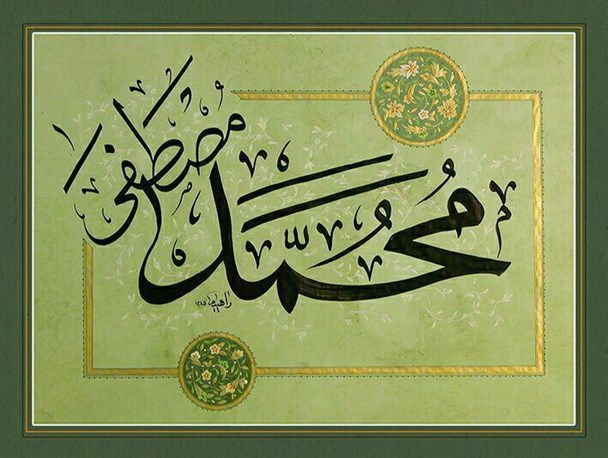 محمد
مصطفى